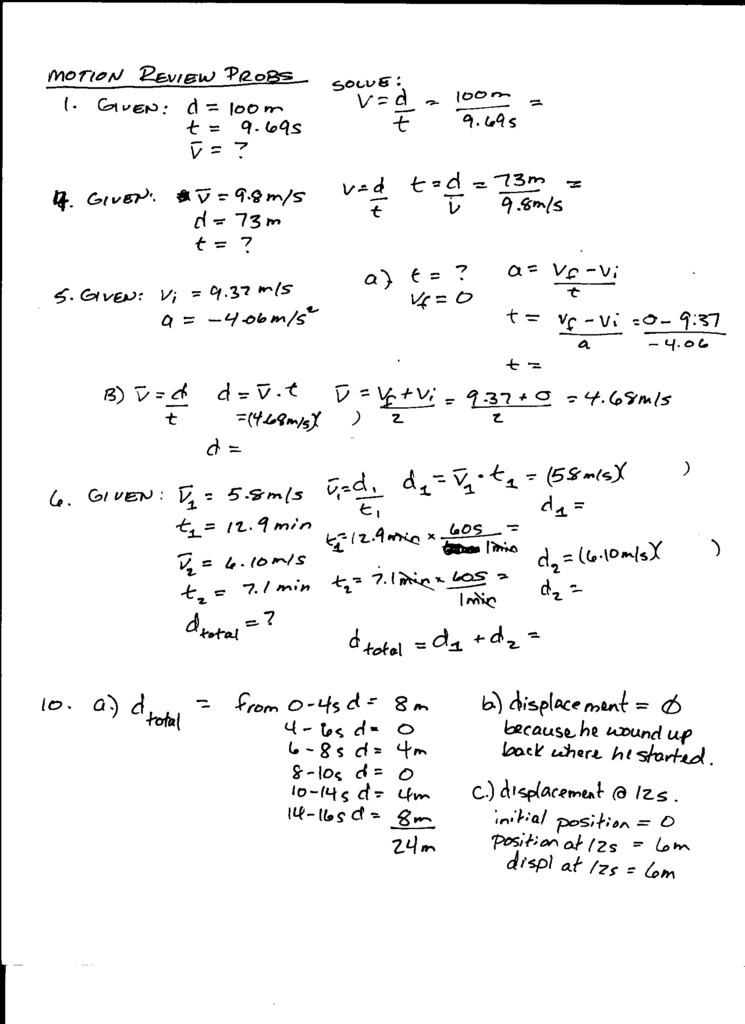 MOTION REVIEW PROBS
1. GIVEN: d = 100m
t = 9.69s
v̄ = ?
SOLVE:
V = d/t = 100m/9.69s =
4. GIVEN: v̄ = 9.8m/s
d = 73m
t = ?
v = d/t t = d/v̄ = 73m/9.8m/s =
5. GIVEN: Vi = 9.37 m/s
a = -4.06m/s²
a) t = ?
Vf = 0
a = Vf - Vi/t
t = Vf - Vi/a = 0 - 9.37/-4.06
t =
B) v̄ = d/t d = v̄ . t v̄ = Vf + Vi/2 = 9.37 + 0/2 = 4.68m/s
=(4.68m/s)( )
d =
6. GIVEN: v̄1 = 5.8m/s
t1 = 12.9 min
v̄2 = 6.10m/s
t2 = 7.1 min
d total = ?
v̄1 = d1/t1 d1 = v̄1 · t1 = (5.8m/s)( )
d1 =
t1 = 12.9min × 60s/1min =
d2 = (6.10m/s)( )
t2 = 7.1min × 60s/1min =
d2 =
d total = d1 + d2 =
10. a.) d total = from 0-4s d = 8m
4-6s d = 0
6-8s d = 4m
8-10s d = 0
10-14s d = 4m
14-16s d = 8m
24m
b.) displacement = Ø
because he wound up
back where he started.
c.) displacement @ 12s.
initial position = 0
position at 12s = 6m
displ at 12s = 6m